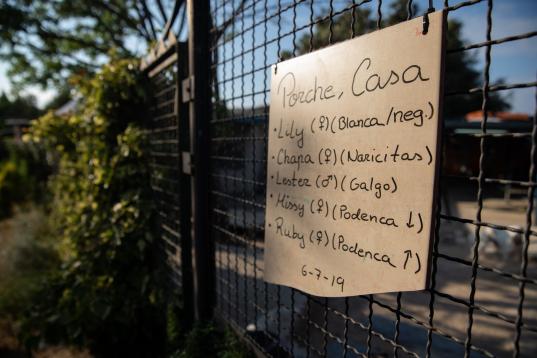 Porche, Casa
• Lily (♀) (Blanca/neg.)
• Chapa (♀) (Naricitas)
• Lester (♂) (Galgo)
• Missy (♀) (Podenca ↓)
• Ruby (♀) (Podenca ↑)
6-7-19